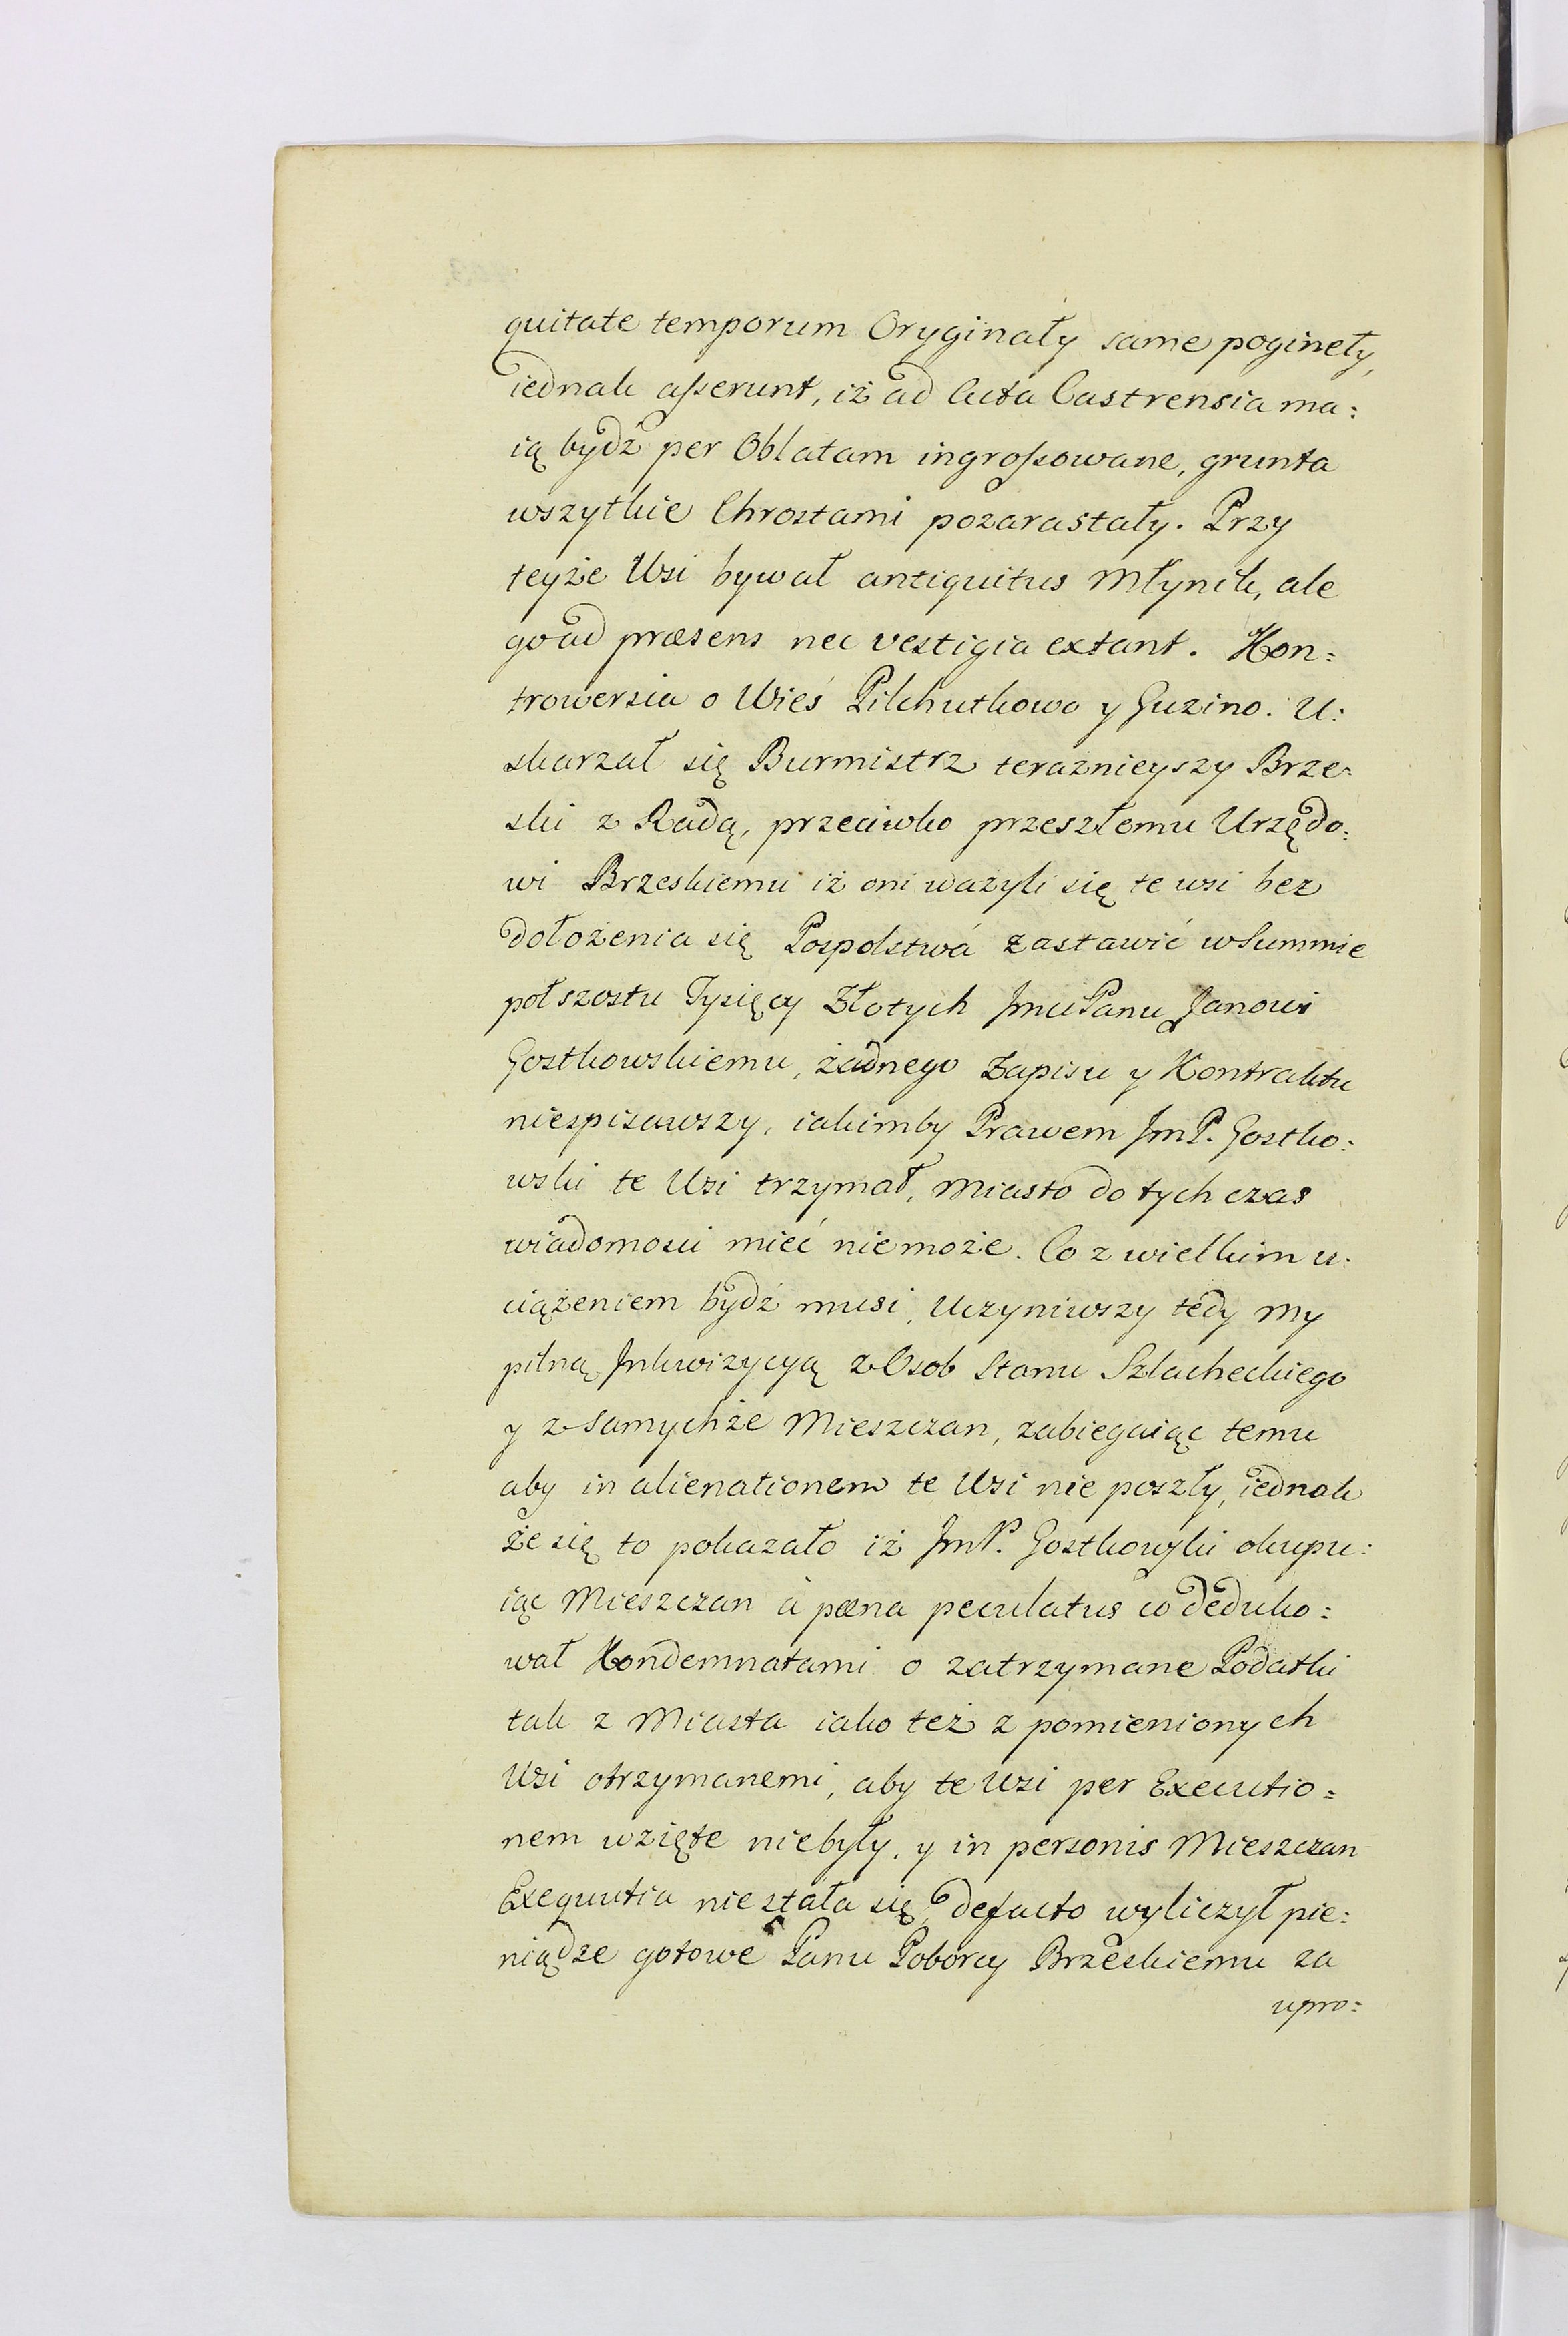 quitate temporum Oryginały same poginęły,
iednak aſserunt, iż ad Acta Castrensia ma:
ią bydź per Oblatam ingroſsowane, grunta
wszytkie Chrostami pozarastały. Przy
teyże Wsi bywał antiquitus Młynik, ale
go ad præsens nec vestigia extant. Kon:
trowersia o Wieś Pilchutkowo y Guzino. U:
skarzał się Burmistrz teraznieyszy Brze:
ski z Radą, przeciwko przeszłemu Urzędo:
wi Brzeskiemu iż oni ważyli się te wsi bez
dołożenia się Pospolstwá zastawić w Summie
poł szostu Tysięcy Złotych Jmu Panu Janowi
Gostkowskiemu, żadnego Zapisu y Kontraktu
niespisawszy, iakimby Prawem JmP. Gostko:
wski te Wsi trzymał, Miasto do tych czas
wiadomosci mieć niemoże. Co z wielkim u:
ciążeniem bydź musi, Uczyniwszy tedy my
pilną Jnkwizycyą z Osob Stanu Szlacheckiego
y z samychże Mieszczan, zabiegaiąc temu
aby in alienationem te Wsi nie poszły, iednak
że się to pokazało iż JmP. Gostkowski okupu:
iąc Mieszczan à pæna peculatus co deduko:
wał Kondemnatami o zatrzymane Podatki
tak z Miasta iako też z pomienionych
Wsi otrzymanemi, aby te Wsi per Executio:
nem wzięte niebyły, y in personis Mieszczan
Exequutia niestała się, defacto wyliczył pie:
niądze gotowe Panu Poborcy Brzeskiemu za
upro: